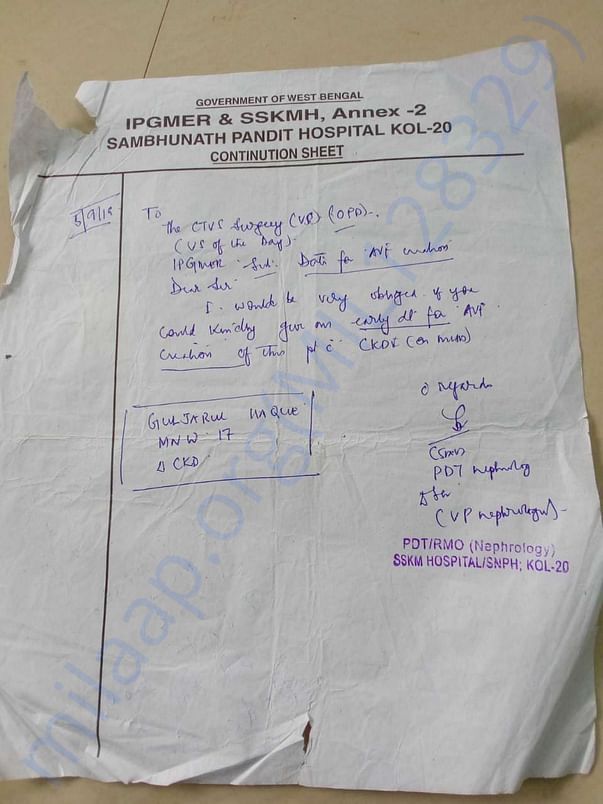 GOVERNMENT OF WEST BENGAL
IPGMER & SSKMH, Annex -2
SAMBHUNATH PANDIT HOSPITAL KOL-20
CONTINUTION SHEET
To
The CTVS Surgery (VS) (OPD)-.
(VS of the Day).
IPGMER Sub: Date for AVF creation
Dear Sir
I would be very obliged if you
could kindly give an early dt for AVF
creation of this pt c̄ CKD (on MHD)
GULJARUL HAQUE
MNW 17
Δ CKD
c̄ regards
PDT nephrology
(VP nephrology)-
PDT/RMO (Nephrology)
SSKM HOSPITAL/SNPH; KOL-20
milaap.org(MILL128329)